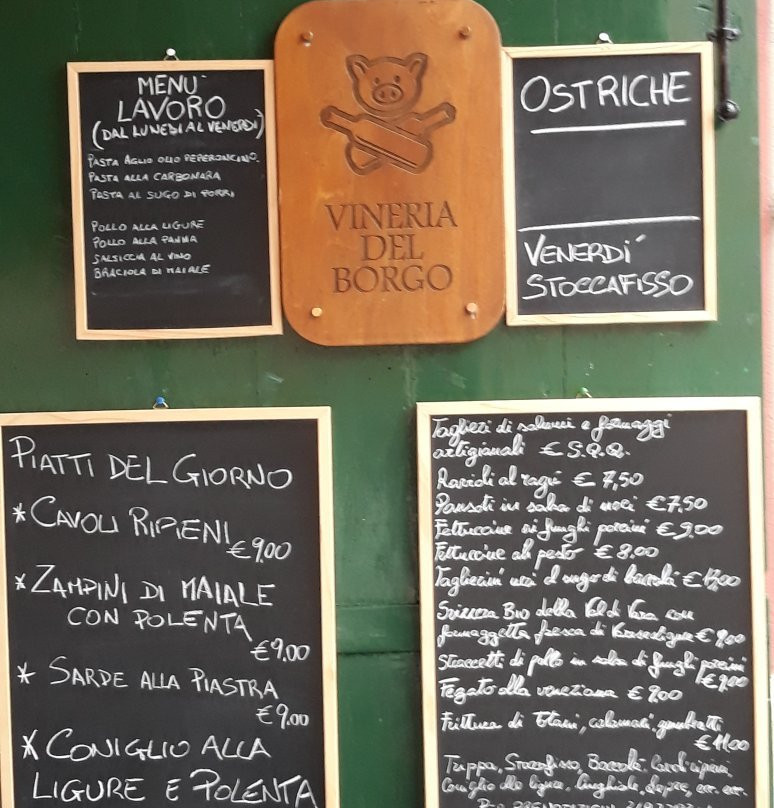 MENU'
LAVORO
(DAL LUNEDI AL VENERDI)
PASTA AGLIO OLIO PEPERONCINO
PASTA ALLA CARBONARA
PASTA AL SUGO DI PORRI
POLLO ALLA LIGURE
POLLO ALLA PANNA
SALSICCIA AL VINO
BRACIOLA DI MAIALE
VINERIA
DEL
BORGO
OSTRICHE
VENERDI'
STOCCAFISSO
PIATTI DEL GIORNO
* CAVOLI RIPIENI
€ 9,00
* ZAMPINI DI MAIALE
CON POLENTA
€ 9,00
* SARDE ALLA PIASTRA
€ 9,00
* CONIGLIO ALLA
LIGURE E POLENTA
Taglieri di salumi e formaggi
artigianali € S.Q.Q.
Ravioli al ragù € 7,50
Pansoti in salsa di noci € 7,50
Fettuccine ai funghi porcini € 9,00
Fettuccine al pesto € 8,00
Taglierini neri al sugo di baccalà €
Svizzera Bio della Val di Vara con
formaggetta fresca di € 9,00
Straccetti di pollo in salsa di funghi porcini
€ 9,00
Fegato alla veneziana € 9,00
Frittura di Totani, calamari, gamberetti
€ 11,00
Trippa, Stoccafisso, Baccalà,
Coniglio alla ligure, Cinghiale, Lepre, ecc. ecc.